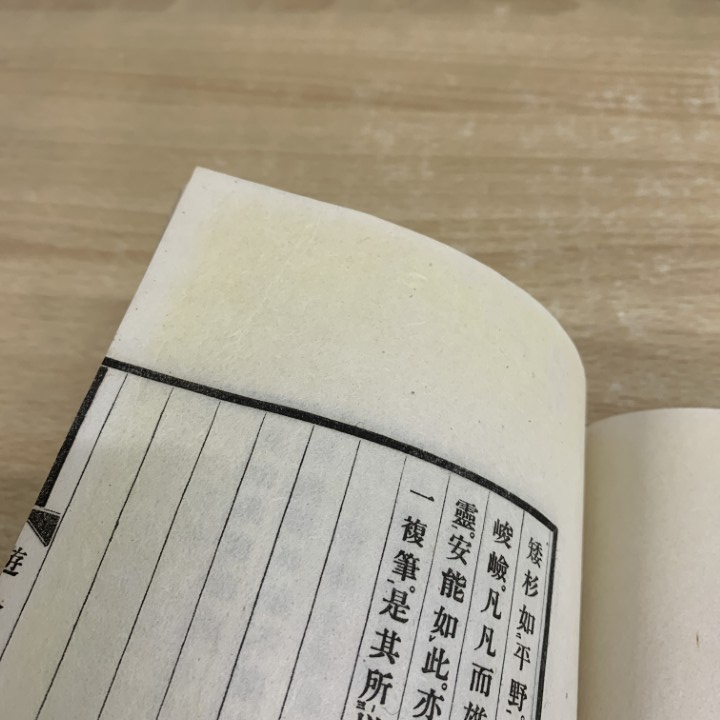 矮杉如平野。
峻嶮。凡凡而雄
靈。安能如此。亦
一複筆。是其所
遊